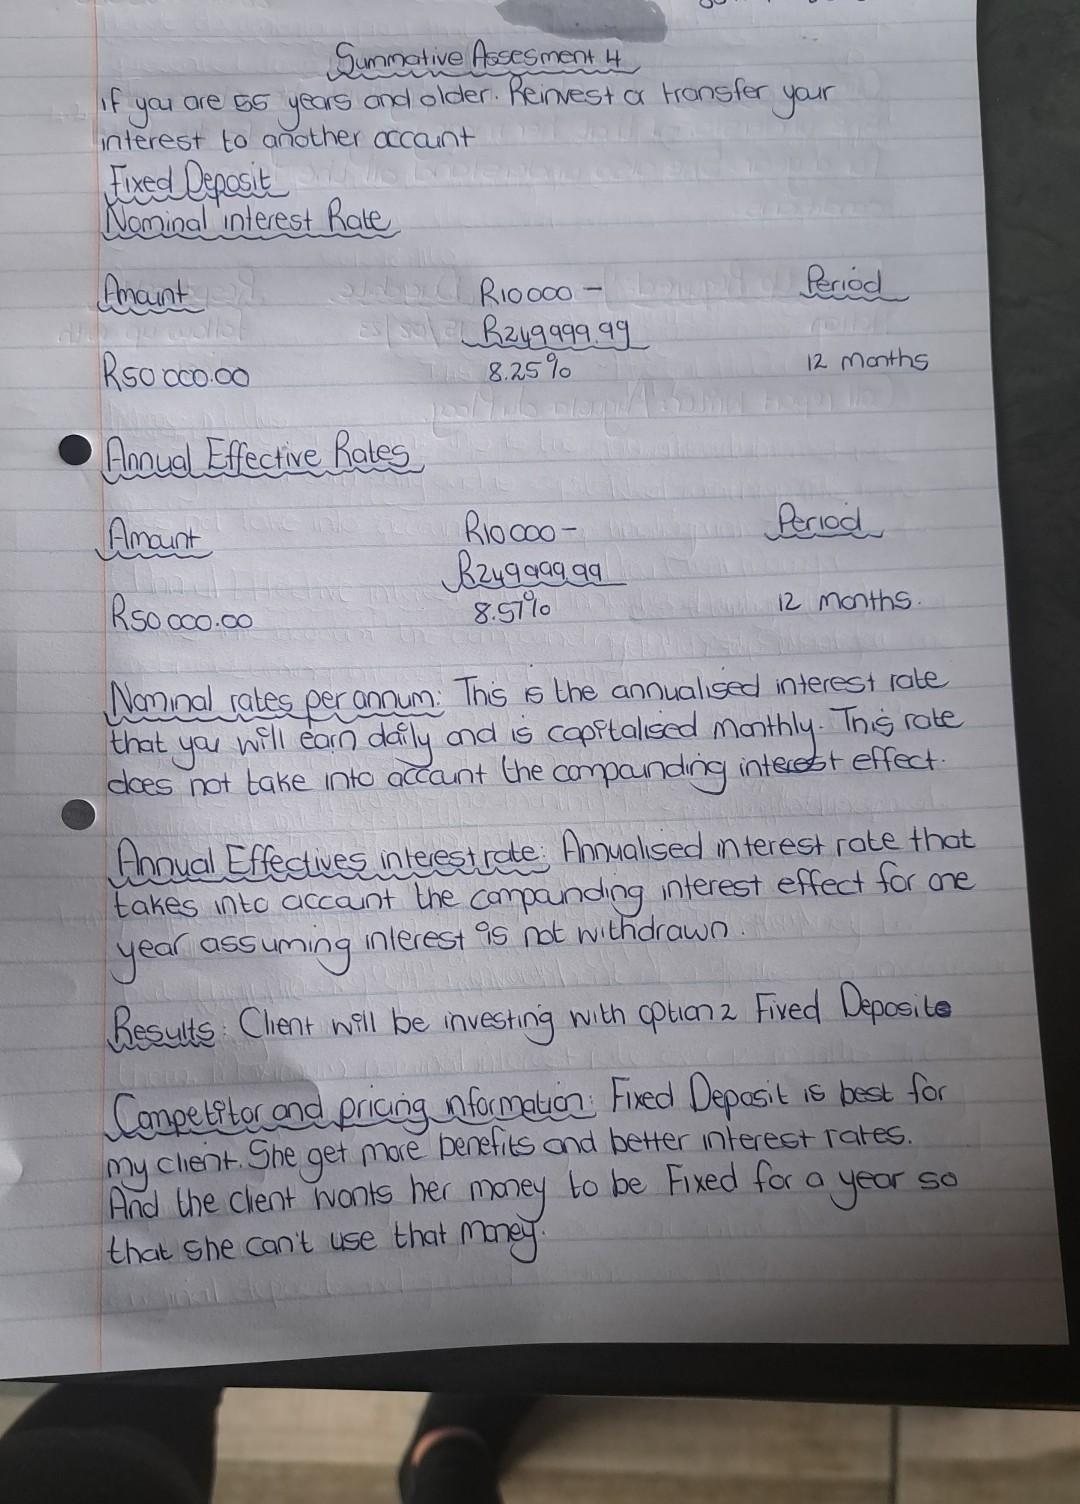 Summative Assesment 4
if you are 55 years and older. Reinvest or transfer your
interest to another account
Fixed Deposit
Nominal interest Rate
Amount R10 000 - Period
R249 999.99
R50 000.00 8.25% 12 Months
Annual Effective Rates
Amount R10 000 - Period
R249 999.99
R50 000.00 8.57% 12 months.
Nominal rates per annum: This is the annualised interest rate
that you will earn daily and is capitalised monthly. This rate
does not take into account the compounding interest effect.
Annual Effectives interest rate: Annualised interest rate that
takes into account the compounding interest effect for one
year assuming interest is not withdrawn.
Results: Client will be investing with option 2 Fixed Deposite
Competitor and pricing information: Fixed Deposit is best for
my client. She get more benefits and better interest rates.
And the client wants her money to be Fixed for a year so
that she can't use that money.